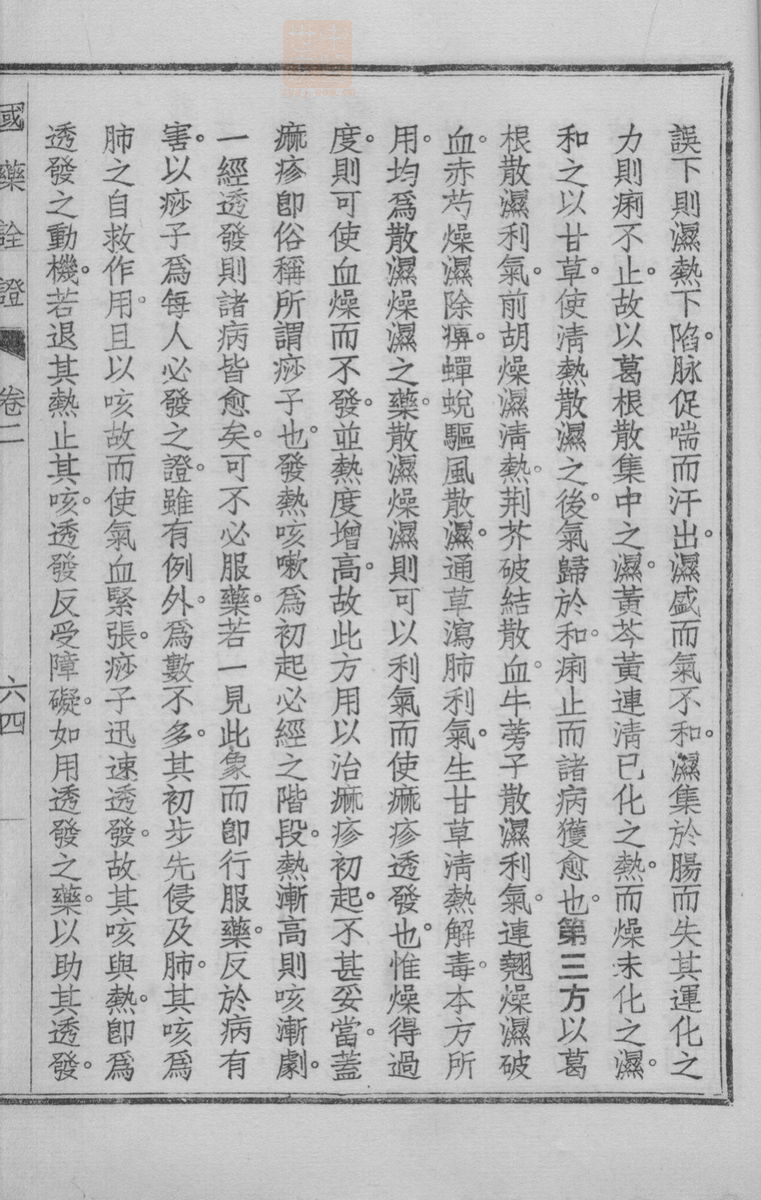 誤下則濕熱下陷。脉促喘而汗出。濕盛而氣不和。濕集於腸而失其運化之
力則痢不止。故以葛根散集中之濕。黃芩黃連清已化之熱。而燥未化之濕。
和之以甘草。使清熱散濕之後。氣歸於和。痢止而諸病獲愈也。第三方以葛
根散濕利氣。前胡燥濕清熱。荆芥破結散血。牛蒡子散濕利氣。連翹燥濕破
血。赤芍燥濕除痹。蟬蛻驅風散濕。通草瀉肺利氣。生甘草清熱解毒。本方所
用。均爲散濕燥濕之藥。散濕燥濕則可以利氣而使痲疹透發也。惟燥得過
度。則可使血燥而不發。並熱度增高。故此方用以治痲疹初起。不甚妥當。蓋
痲疹卽俗稱所謂痧子也。發熱咳嗽爲初起必經之階段。熱漸高則咳漸劇。
一經透發則諸病皆愈矣。可不必服藥。若一見此象而卽行服藥。反於病有
害。以痧子爲每人必發之證。雖有例外。爲數不多。其初步先侵及肺。其咳爲
肺之自救作用。且以咳故而使氣血緊張。痧子迅速透發。故其咳與熱。卽爲
透發之動機。若退其熱止其咳。透發反受障礙。如用透發之藥。以助其透發。
國藥詮證 卷二 六四